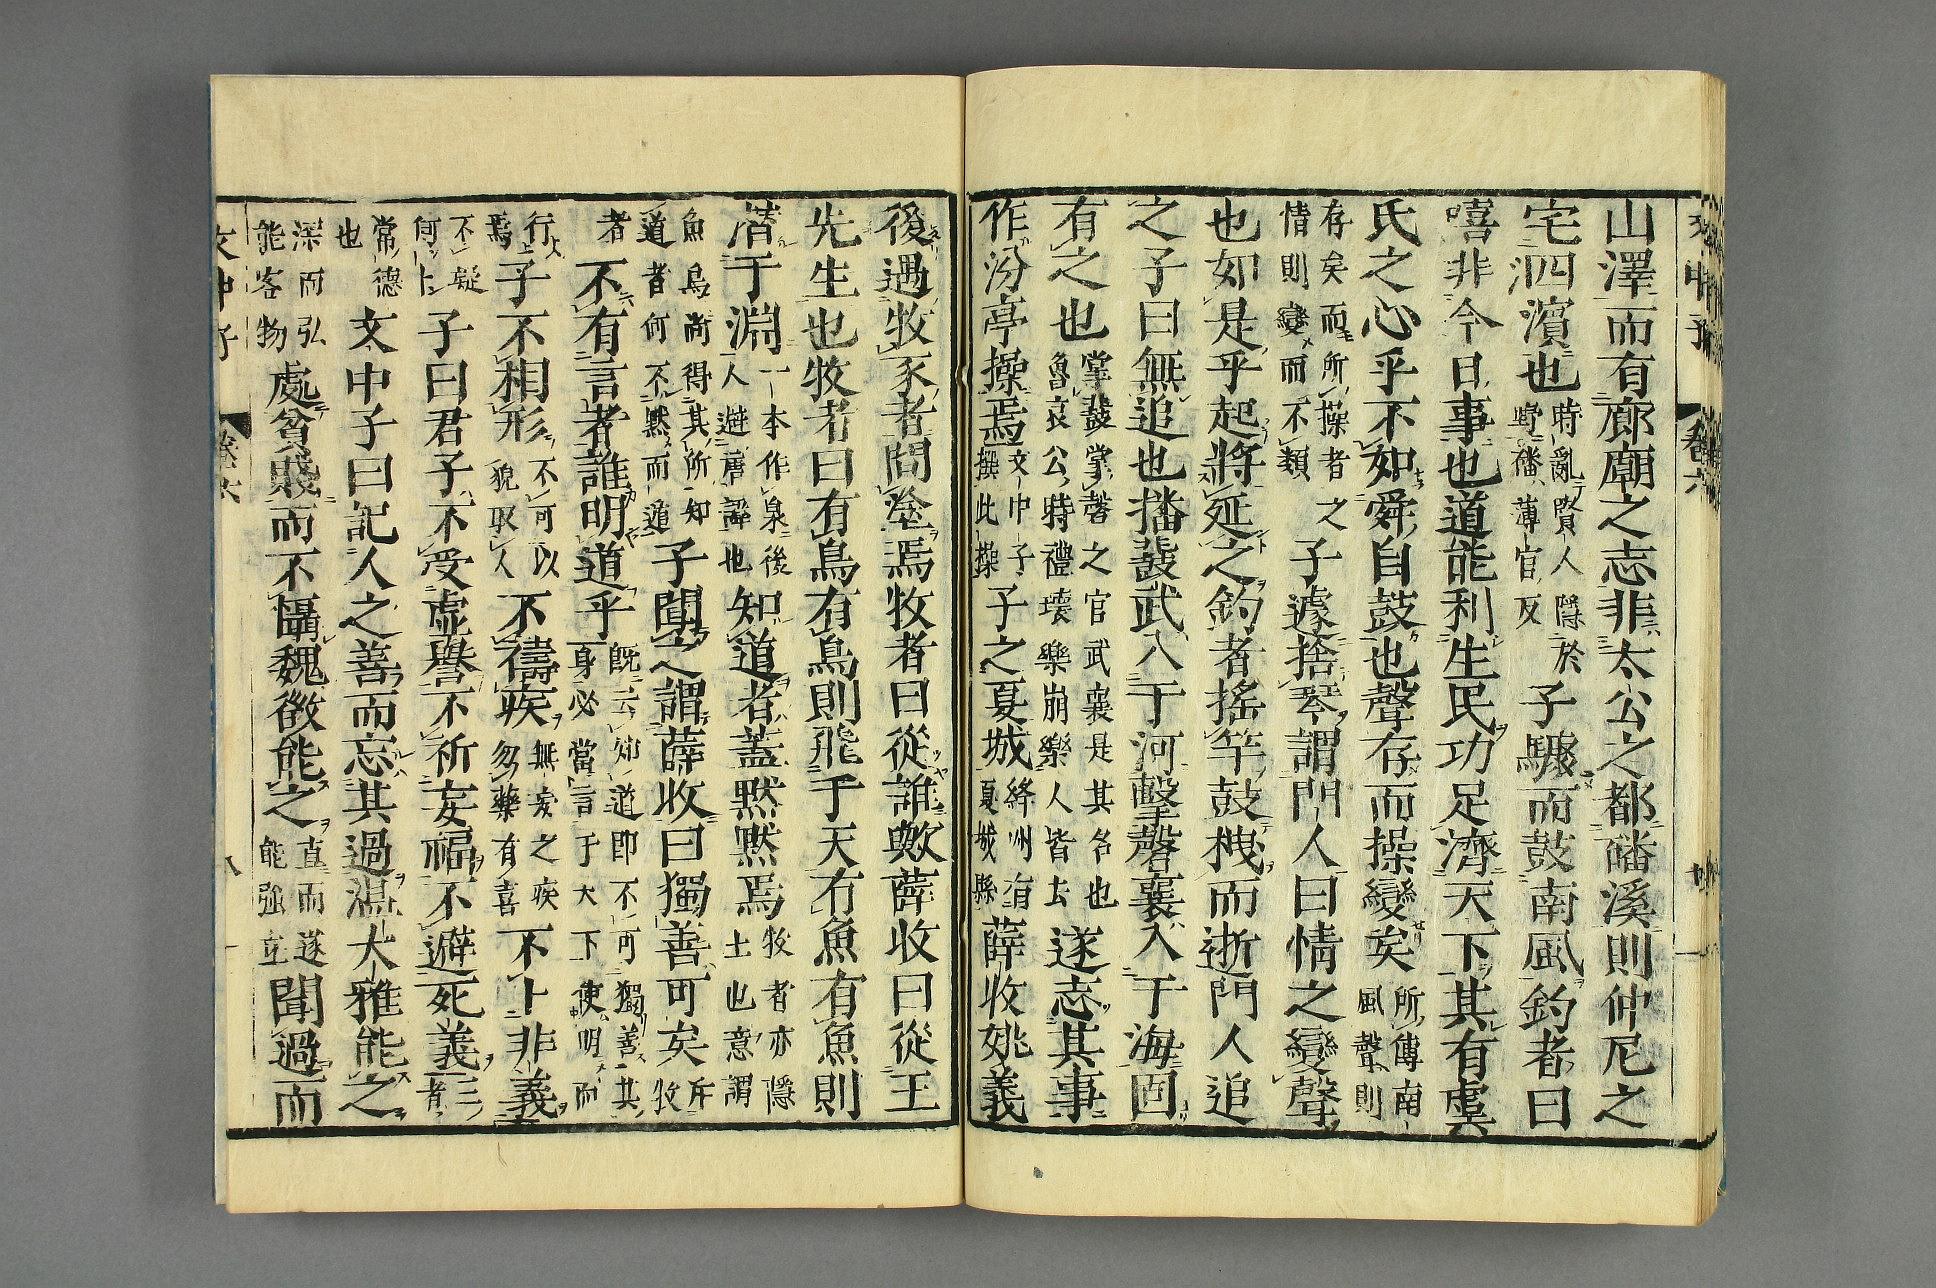 山澤而有廊廟之志非太公之都磻溪則仲尼之
宅泗濱也時亂賢人隱於野磻薄官反子驟而鼓南風釣者曰
嘻非今日事也道能利生民功足濟天下其有虞
氏之心乎不如舜自鼓也聲存而操變矣所傳南風聲則
存矣而所操者之情則變而不類子遽捨琴謂門人曰情之變聲
也如是乎起將延之釣者搖竿鼓枻而逝門人追
之子曰無追也播鼗武入于河擊磬襄入于海固
有之也掌鼗掌磬之官武襄是其名也魯哀公時禮壞樂崩樂人皆去遂志其事
作汾亭操焉文中子撰此操子之夏城絳州有夏城縣薛收姚義
後遇牧豕者問塗焉牧者曰從誰歟薛收曰從王
先生也牧者曰有鳥有鳥則飛于天有魚有魚則
潜于淵一本作泉後人避唐諱也知道者蓋默默焉牧者亦隱士也意謂
魚鳥尚得其所知道者何不默而遁子聞之謂薛收曰獨善可矣斥牧
者不有言者誰明道乎既云知道即不可獨善其身必當言于天下使明而
行焉子不相形不可以貌取人不禱疾無妄之疾勿藥有喜不卜非義
不疑何卜子曰君子不受虚譽不祈妄福不避死義三者
常德也文中子曰記人之善而忘其過温大雅能之
深而弘能客物處貧賤而不懾魏徵能之直而遂能強立聞過而
文中子
卷六